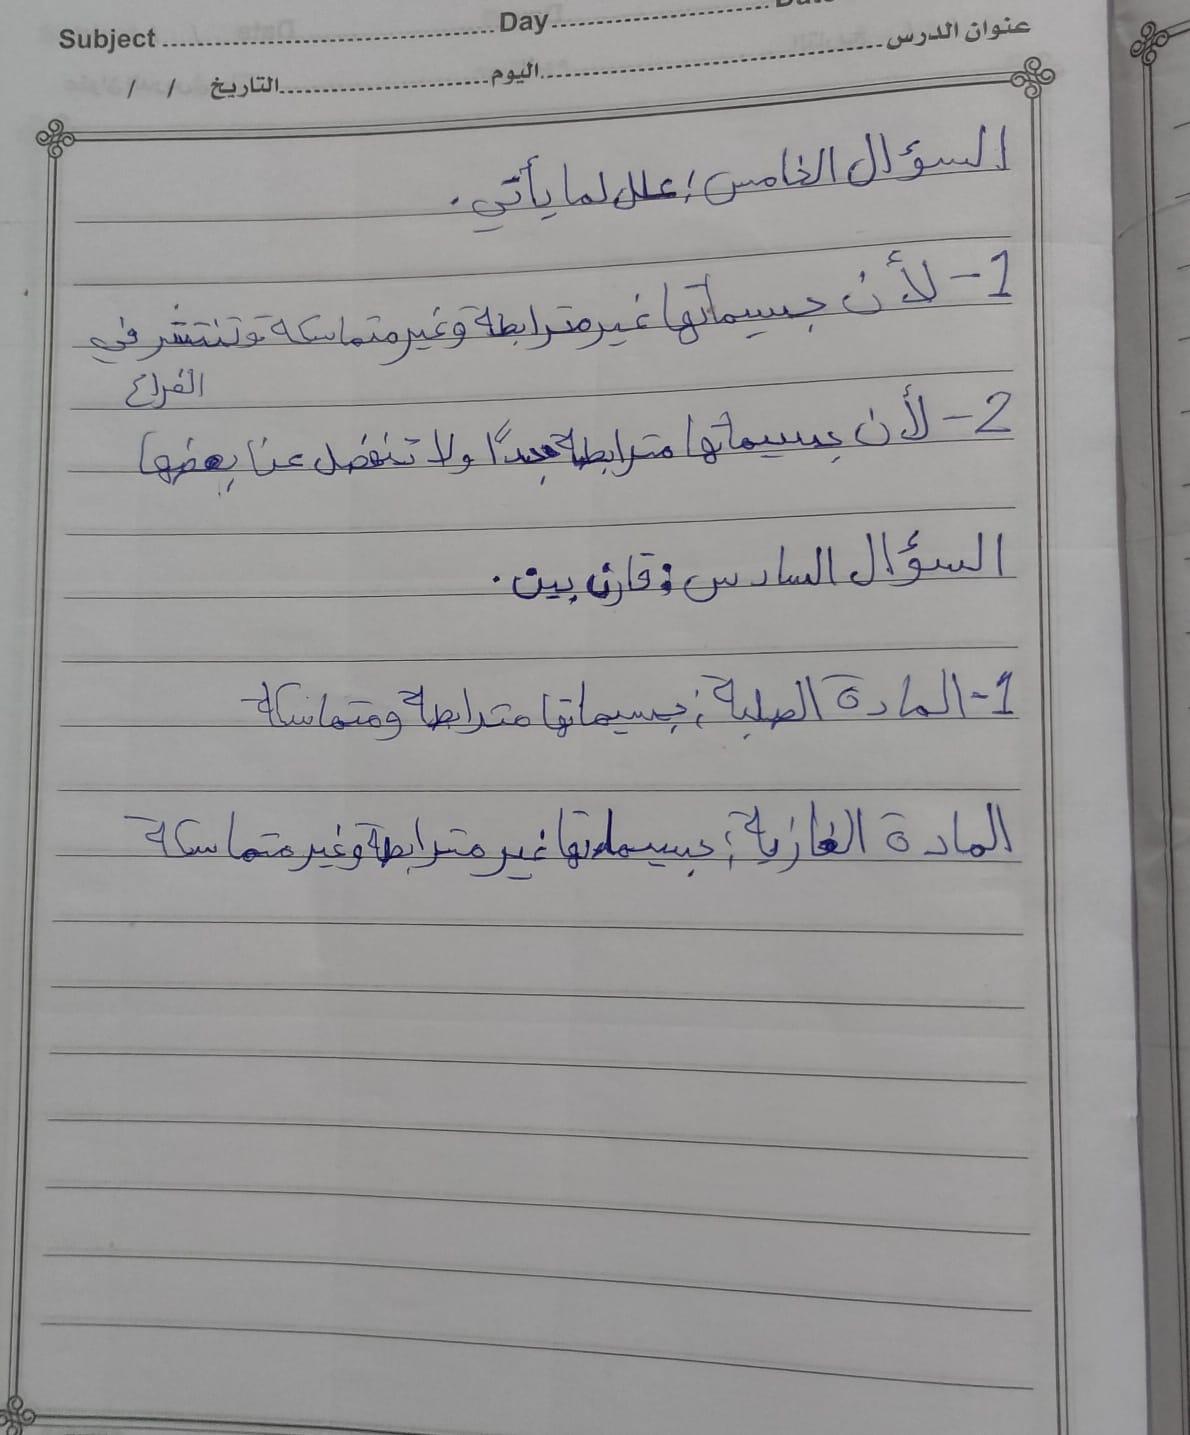 Subject Day
عنوان الدرس
اليوم التاريخ / /
السؤال الخامس: علل لما يأتي.
1- لأن جسيماتها غير مترابطة وغير متماسكة وتنتشر في
الفراغ
2- لأن جسيماتها مترابطة جدًا ولا تنفصل عن بعضها
السؤال السادس: قارن بين.
1- المادة الصلبة: جسيماتها مترابطة ومتماسكة
المادة الغازية: جسيماتها غير مترابطة وغير متماسكة